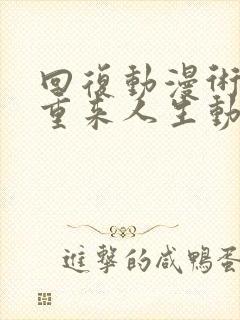 回復動漫術
重來人生動
進擊的咸鴨蛋